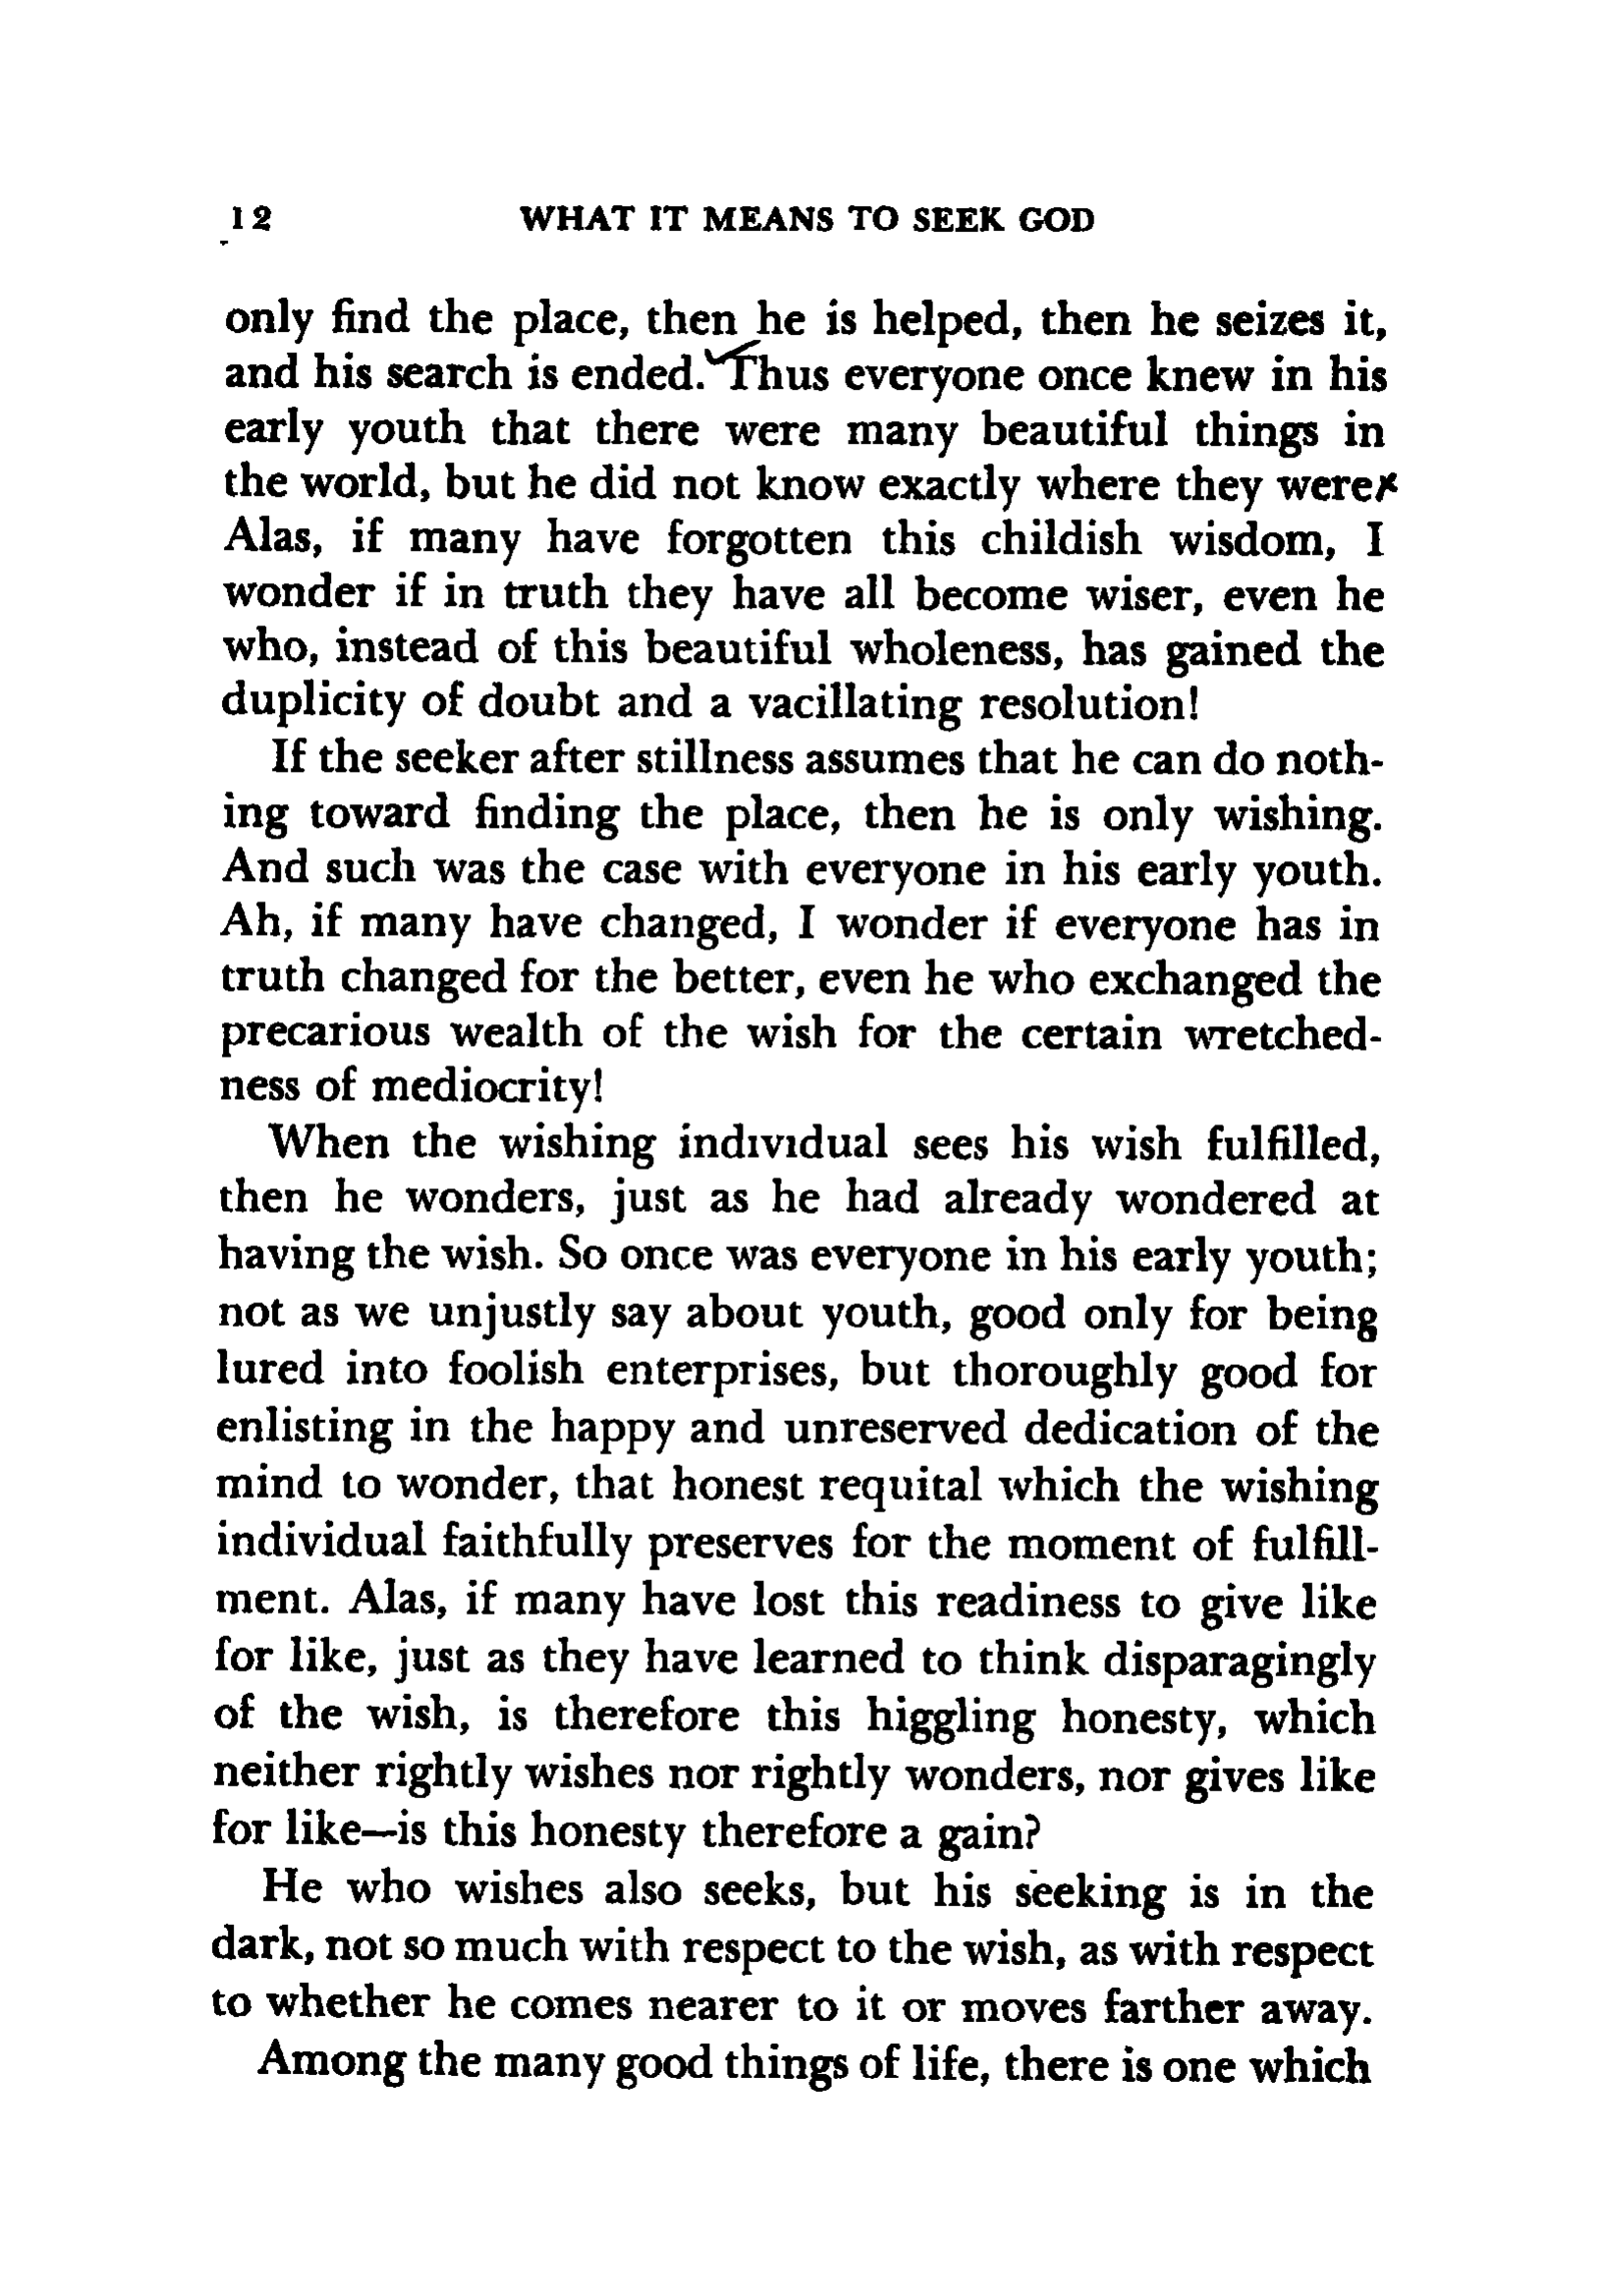 12 WHAT IT MEANS TO SEEK GOD
only find the place, then he is helped, then he seizes it,
and his search is ended. Thus everyone once knew in his
early youth that there were many beautiful things in
the world, but he did not know exactly where they were
Alas, if many have forgotten this childish wisdom, I
wonder if in truth they have all become wiser, even he
who, instead of this beautiful wholeness, has gained the
duplicity of doubt and a vacillating resolution!
If the seeker after stillness assumes that he can do noth-
ing toward finding the place, then he is only wishing.
And such was the case with everyone in his early youth.
Ah, if many have changed, I wonder if everyone has in
truth changed for the better, even he who exchanged the
precarious wealth of the wish for the certain wretched-
ness of mediocrity!
When the wishing individual sees his wish fulfilled,
then he wonders, just as he had already wondered at
having the wish. So once was everyone in his early youth;
not as we unjustly say about youth, good only for being
lured into foolish enterprises, but thoroughly good for
enlisting in the happy and unreserved dedication of the
mind to wonder, that honest requital which the wishing
individual faithfully preserves for the moment of fulfill-
ment. Alas, if many have lost this readiness to give like
for like, just as they have learned to think disparagingly
of the wish, is therefore this higgling honesty, which
neither rightly wishes nor rightly wonders, nor gives like
for like—is this honesty therefore a gain?
He who wishes also seeks, but his seeking is in the
dark, not so much with respect to the wish, as with respect
to whether he comes nearer to it or moves farther away.
Among the many good things of life, there is one which